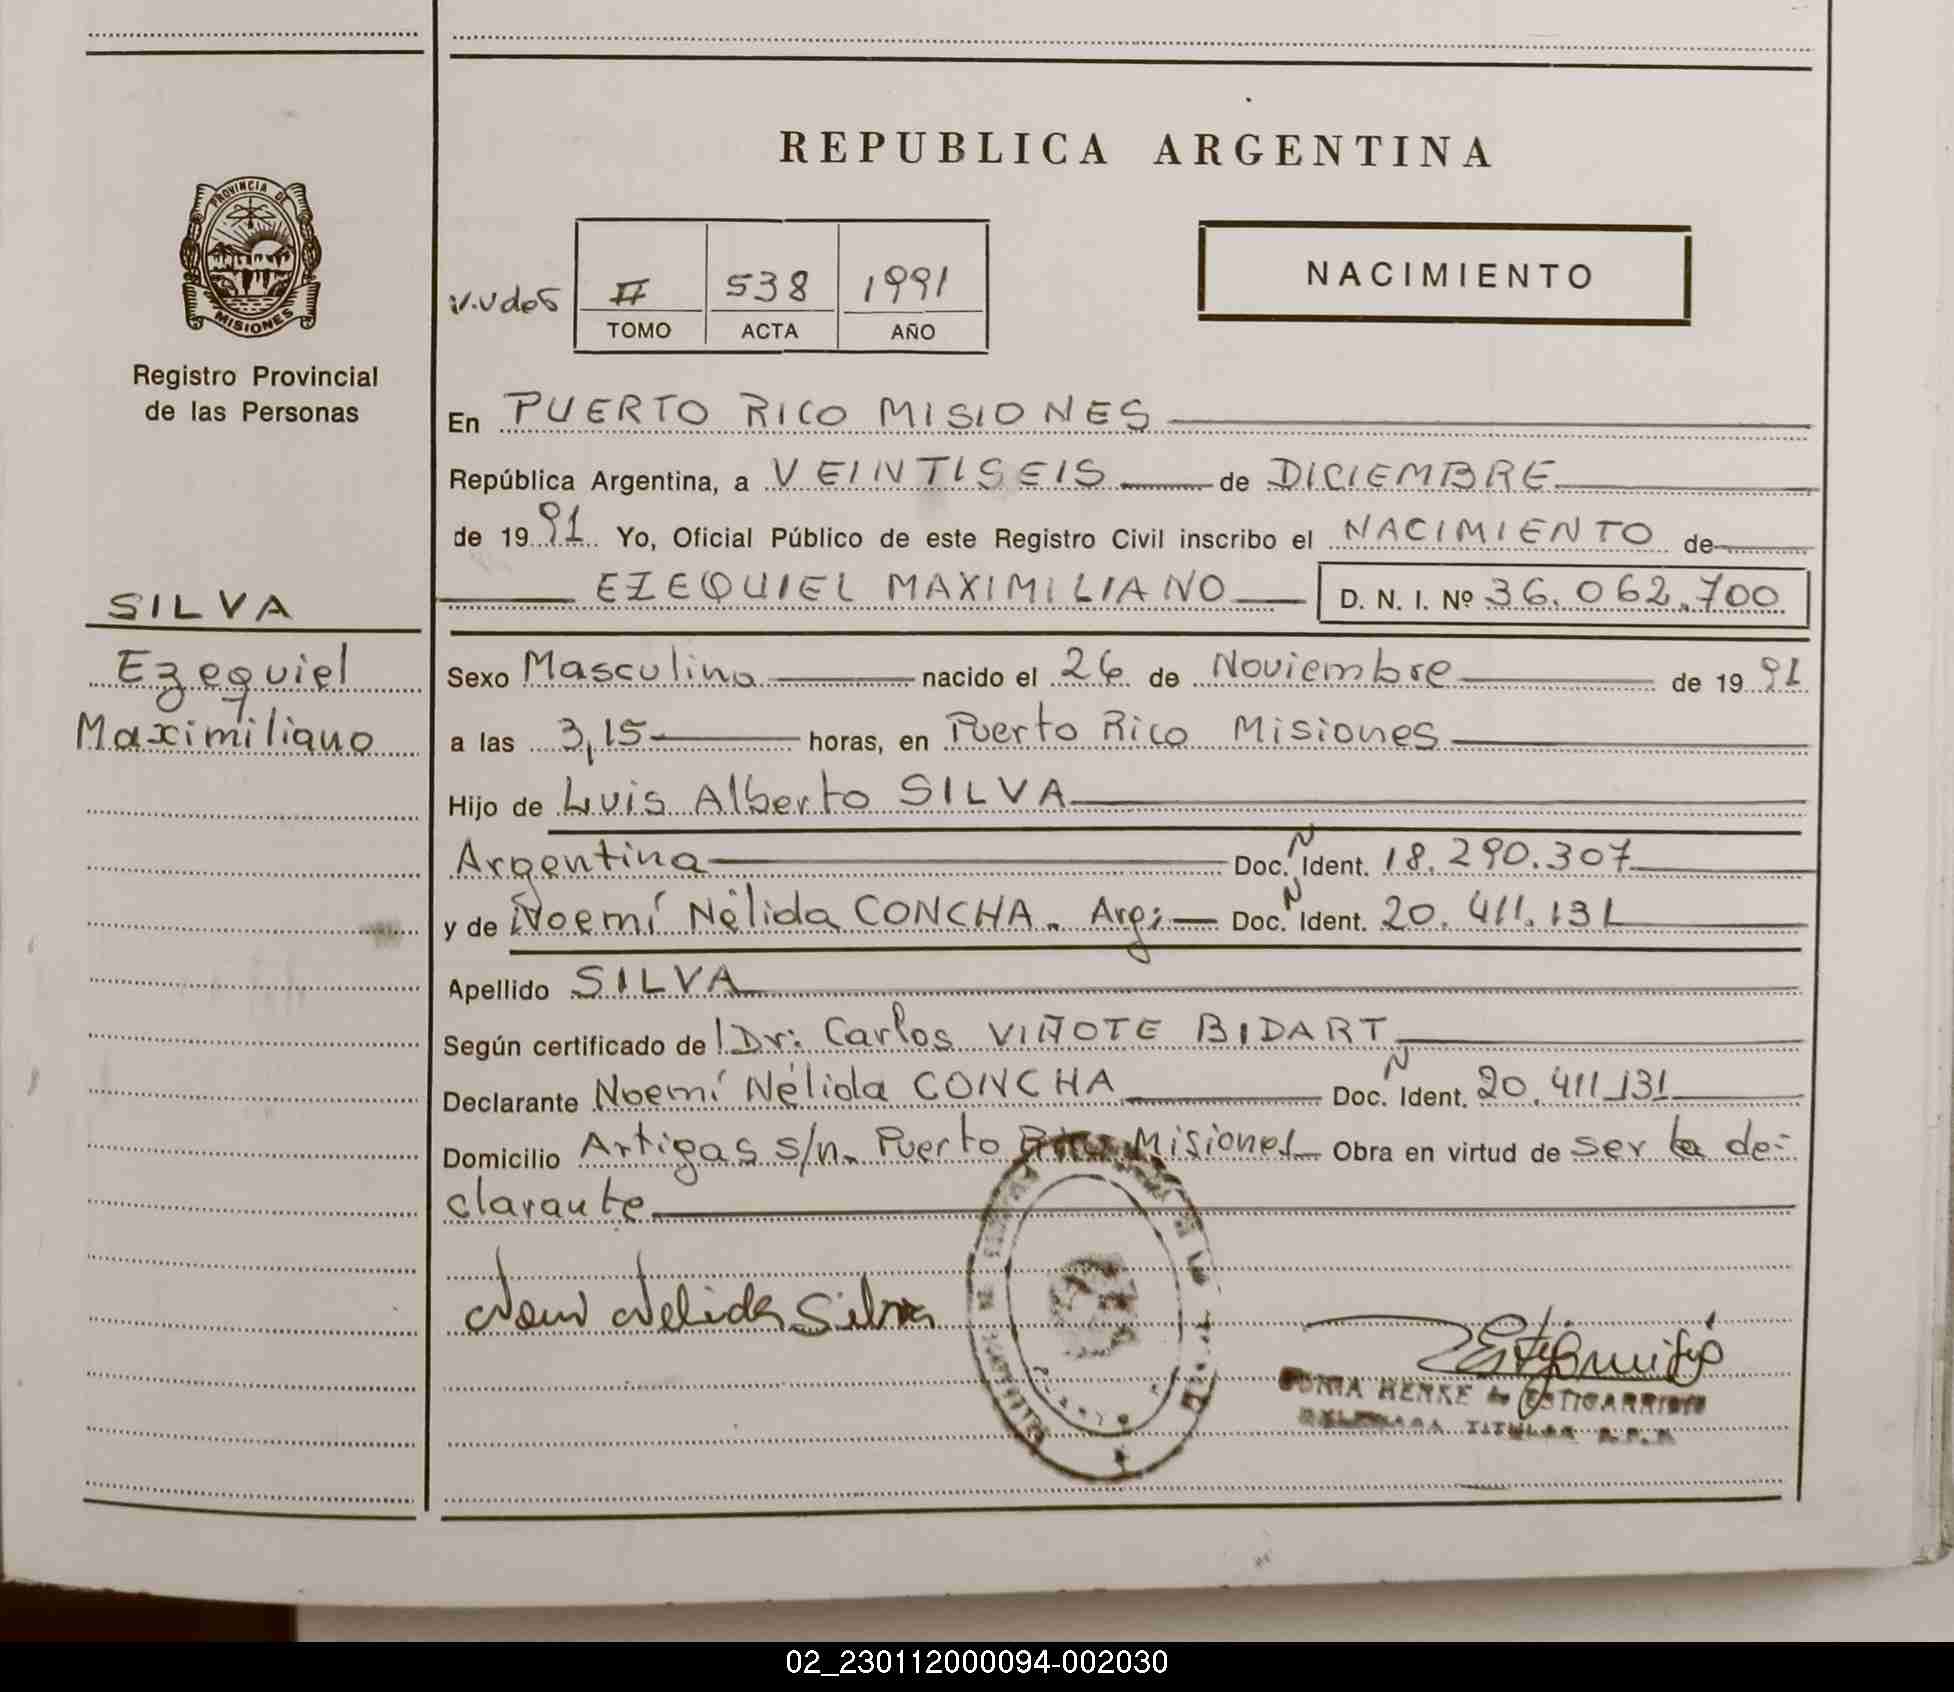 REPUBLICA ARGENTINA
PROVINCIA DE
MISIONES
Registro Provincial
de las Personas
II 538 1991
TOMO ACTA AÑO
NACIMIENTO
En PUERTO RICO MISIONES
República Argentina, a VEINTISEIS de DICIEMBRE
de 1991 Yo, Oficial Público de este Registro Civil inscribo el NACIMIENTO de
EZEQUIEL MAXIMILIANO D. N. I. Nº 36.062.700
SILVA
Ezequiel
Maximiliano
Sexo Masculino nacido el 26 de Noviembre de 1991
a las 3,15 horas, en Puerto Rico Misiones
Hijo de Luis Alberto SILVA
Argentina Doc. N Ident. 18.290.307
y de Noemí Nélida CONCHA. Arg; Doc. N Ident. 20.411.131
Apellido SILVA
Según certificado de Dr: Carlos VIÑOTE BIDART
Declarante Noemí Nélida CONCHA Doc. N Ident. 20.411.131
Domicilio Artigas s/n. Puerto Rico Misiones Obra en virtud de ser la de-
clarante
Noemi Nelida Silva
SONIA HENKE de ESTIGARRIBIA
DELEGADA TITULAR R.P.P.
02_230112000094-002030